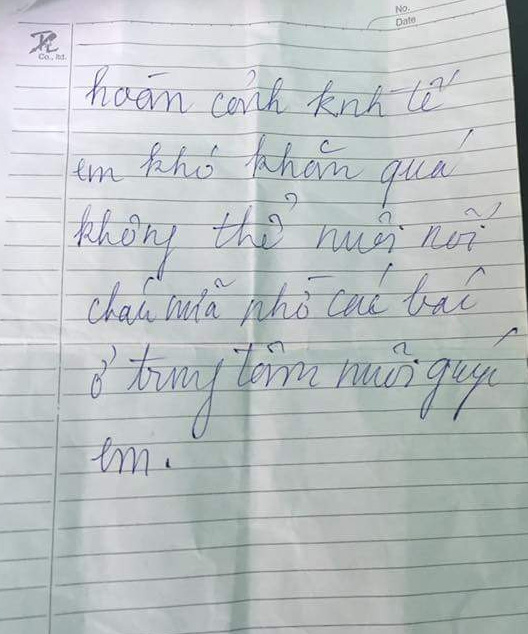 No.
Date
Co., ltd.
hoán cảnh knh tế
em khó khăn quá
không thể nuôi nỗi
cháu nữa nhờ các bác
ở trung tâm nuôi guýp
em.